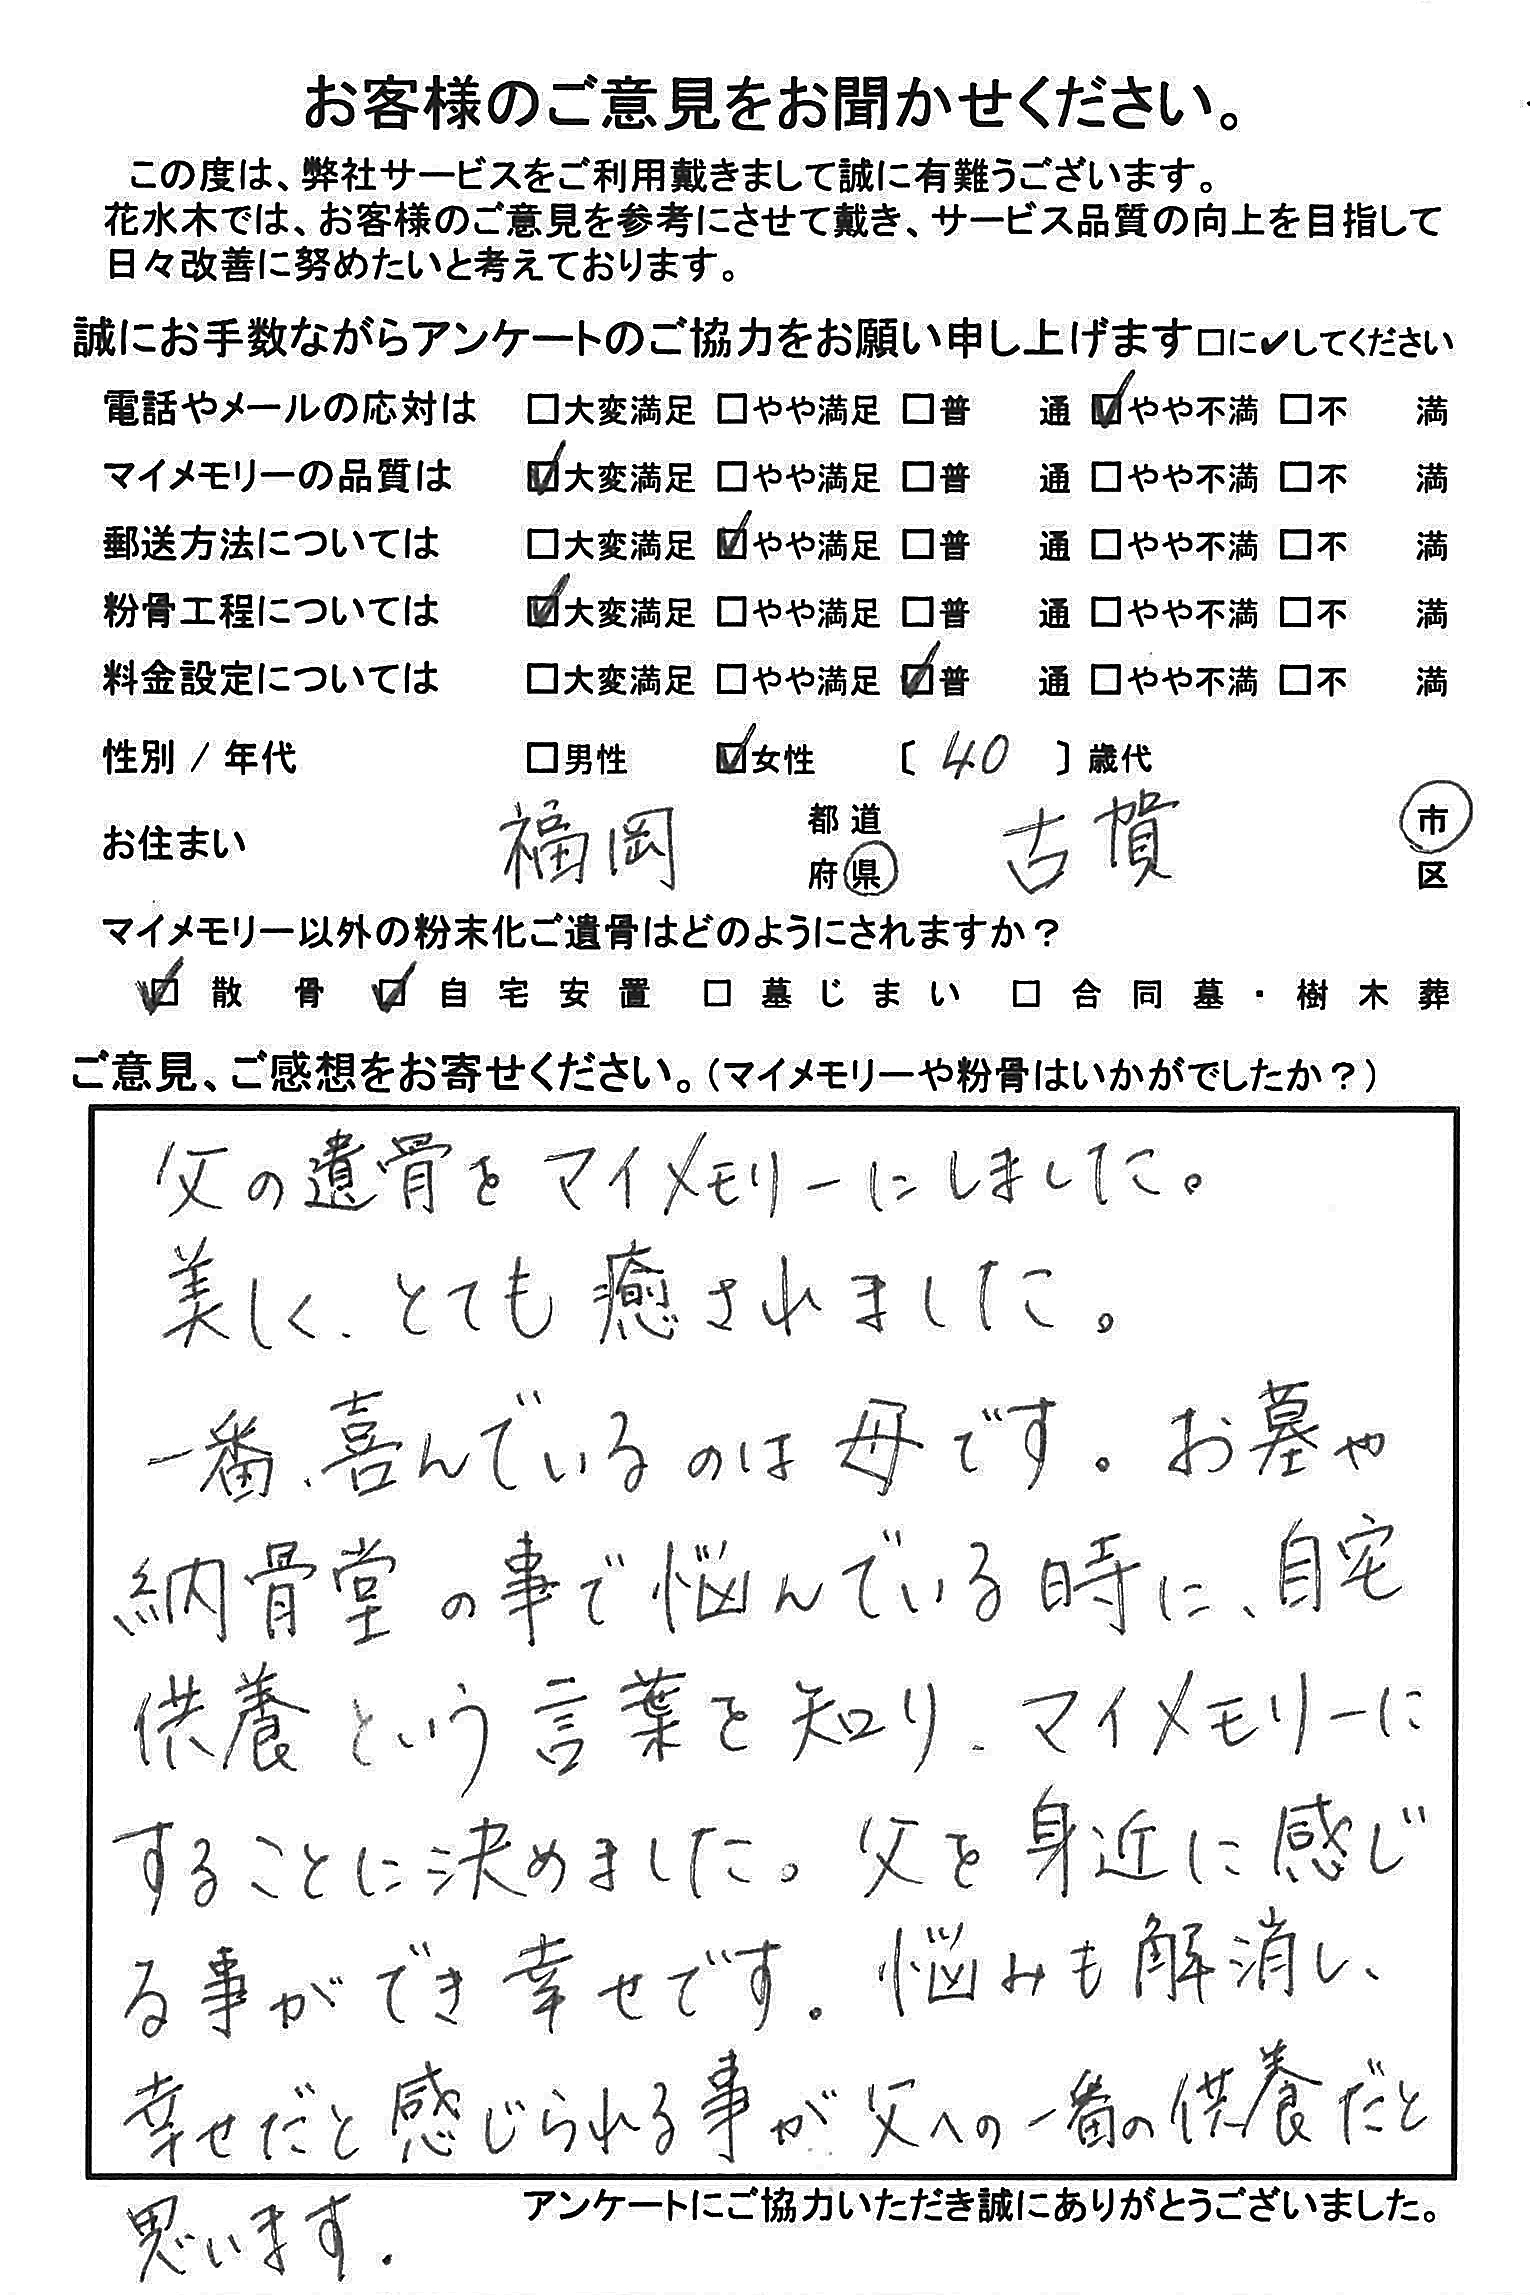 お客様のご意見をお聞かせください。
この度は、弊社サービスをご利用戴きまして誠に有難うございます。
花水木では、お客様のご意見を参考にさせて戴き、サービス品質の向上を目指して
日々改善に努めたいと考えております。
誠にお手数ながらアンケートのご協力をお願い申し上げます□に✔してください
電話やメールの応対は □大変満足 □やや満足 □普 通 ☑やや不満 □不 満
マイメモリーの品質は ☑大変満足 □やや満足 □普 通 □やや不満 □不 満
郵送方法については □大変満足 ☑やや満足 □普 通 □やや不満 □不 満
粉骨工程については ☑大変満足 □やや満足 □普 通 □やや不満 □不 満
料金設定については □大変満足 □やや満足 ☑普 通 □やや不満 □不 満
性別 / 年代 □男性 ☑女性 〔 40 〕歳代
お住まい 福岡 都道府県 古賀 市区
マイメモリー以外の粉末化ご遺骨はどのようにされますか？
☑散骨 ☑自宅安置 □墓じまい □合同墓・樹木葬
ご意見、ご感想をお寄せください。（マイメモリーや粉骨はいかがでしたか？）
父の遺骨をマイメモリーにしました。
美しく、とても癒されました。
一番、喜んでいるのは母です。お墓や
納骨堂の事で悩んでいる時に、自宅
供養という言葉を知り、マイメモリーに
することに決めました。父を身近に感じ
る事ができ幸せです。悩みも解消し、
幸せだと感じられる事が父への一番の供養だと
思います.
アンケートにご協力いただき誠にありがとうございました。